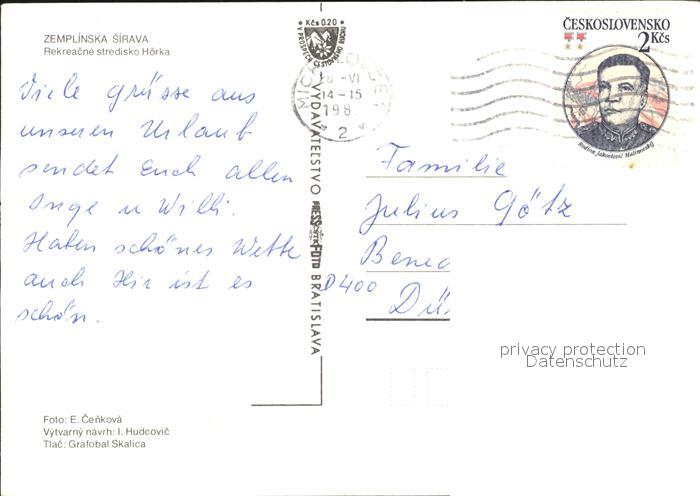 ZEMPLÍNSKA ŠÍRAVA
Rekreačné stredisko Hôrka
Kčs 0.20
V PROSPECH CESTOVNÉHO RUCHU
ČESKOSLOVENSKO
2 Kčs
Rodion Jakovlevič Malinovskij
MICHALOVCE 1
28 -VI
14-15
198
2
Viele Grüsse aus
unseren Urlaub
sendet Euch allen
Inge u Willi.
Haben schönes Wette
auch Hir ist es
schön.
VYDAVATEĽSTVO PRESSFOTO BRATISLAVA
Familie
Julius Götz
Bened
D400 Dü
privacy protection
Datenschutz
Foto: E. Čeňková
Výtvarný návrh: I. Hudcovič
Tlač: Grafobal Skalica